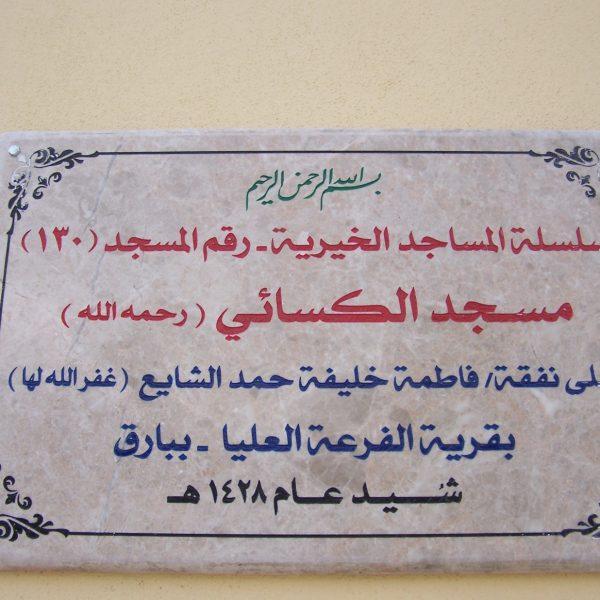 بسم الله الرحمن الرحيم
سلسلة المساجد الخيرية - رقم المسجد (١٣٠)
مسجد الكسائي (رحمه الله)
على نفقة/ فاطمة خليفة حمد الشايع (غفر الله لها)
بقرية الفرعة العليا - ببارق
شيد عام ١٤٢٨ هـ